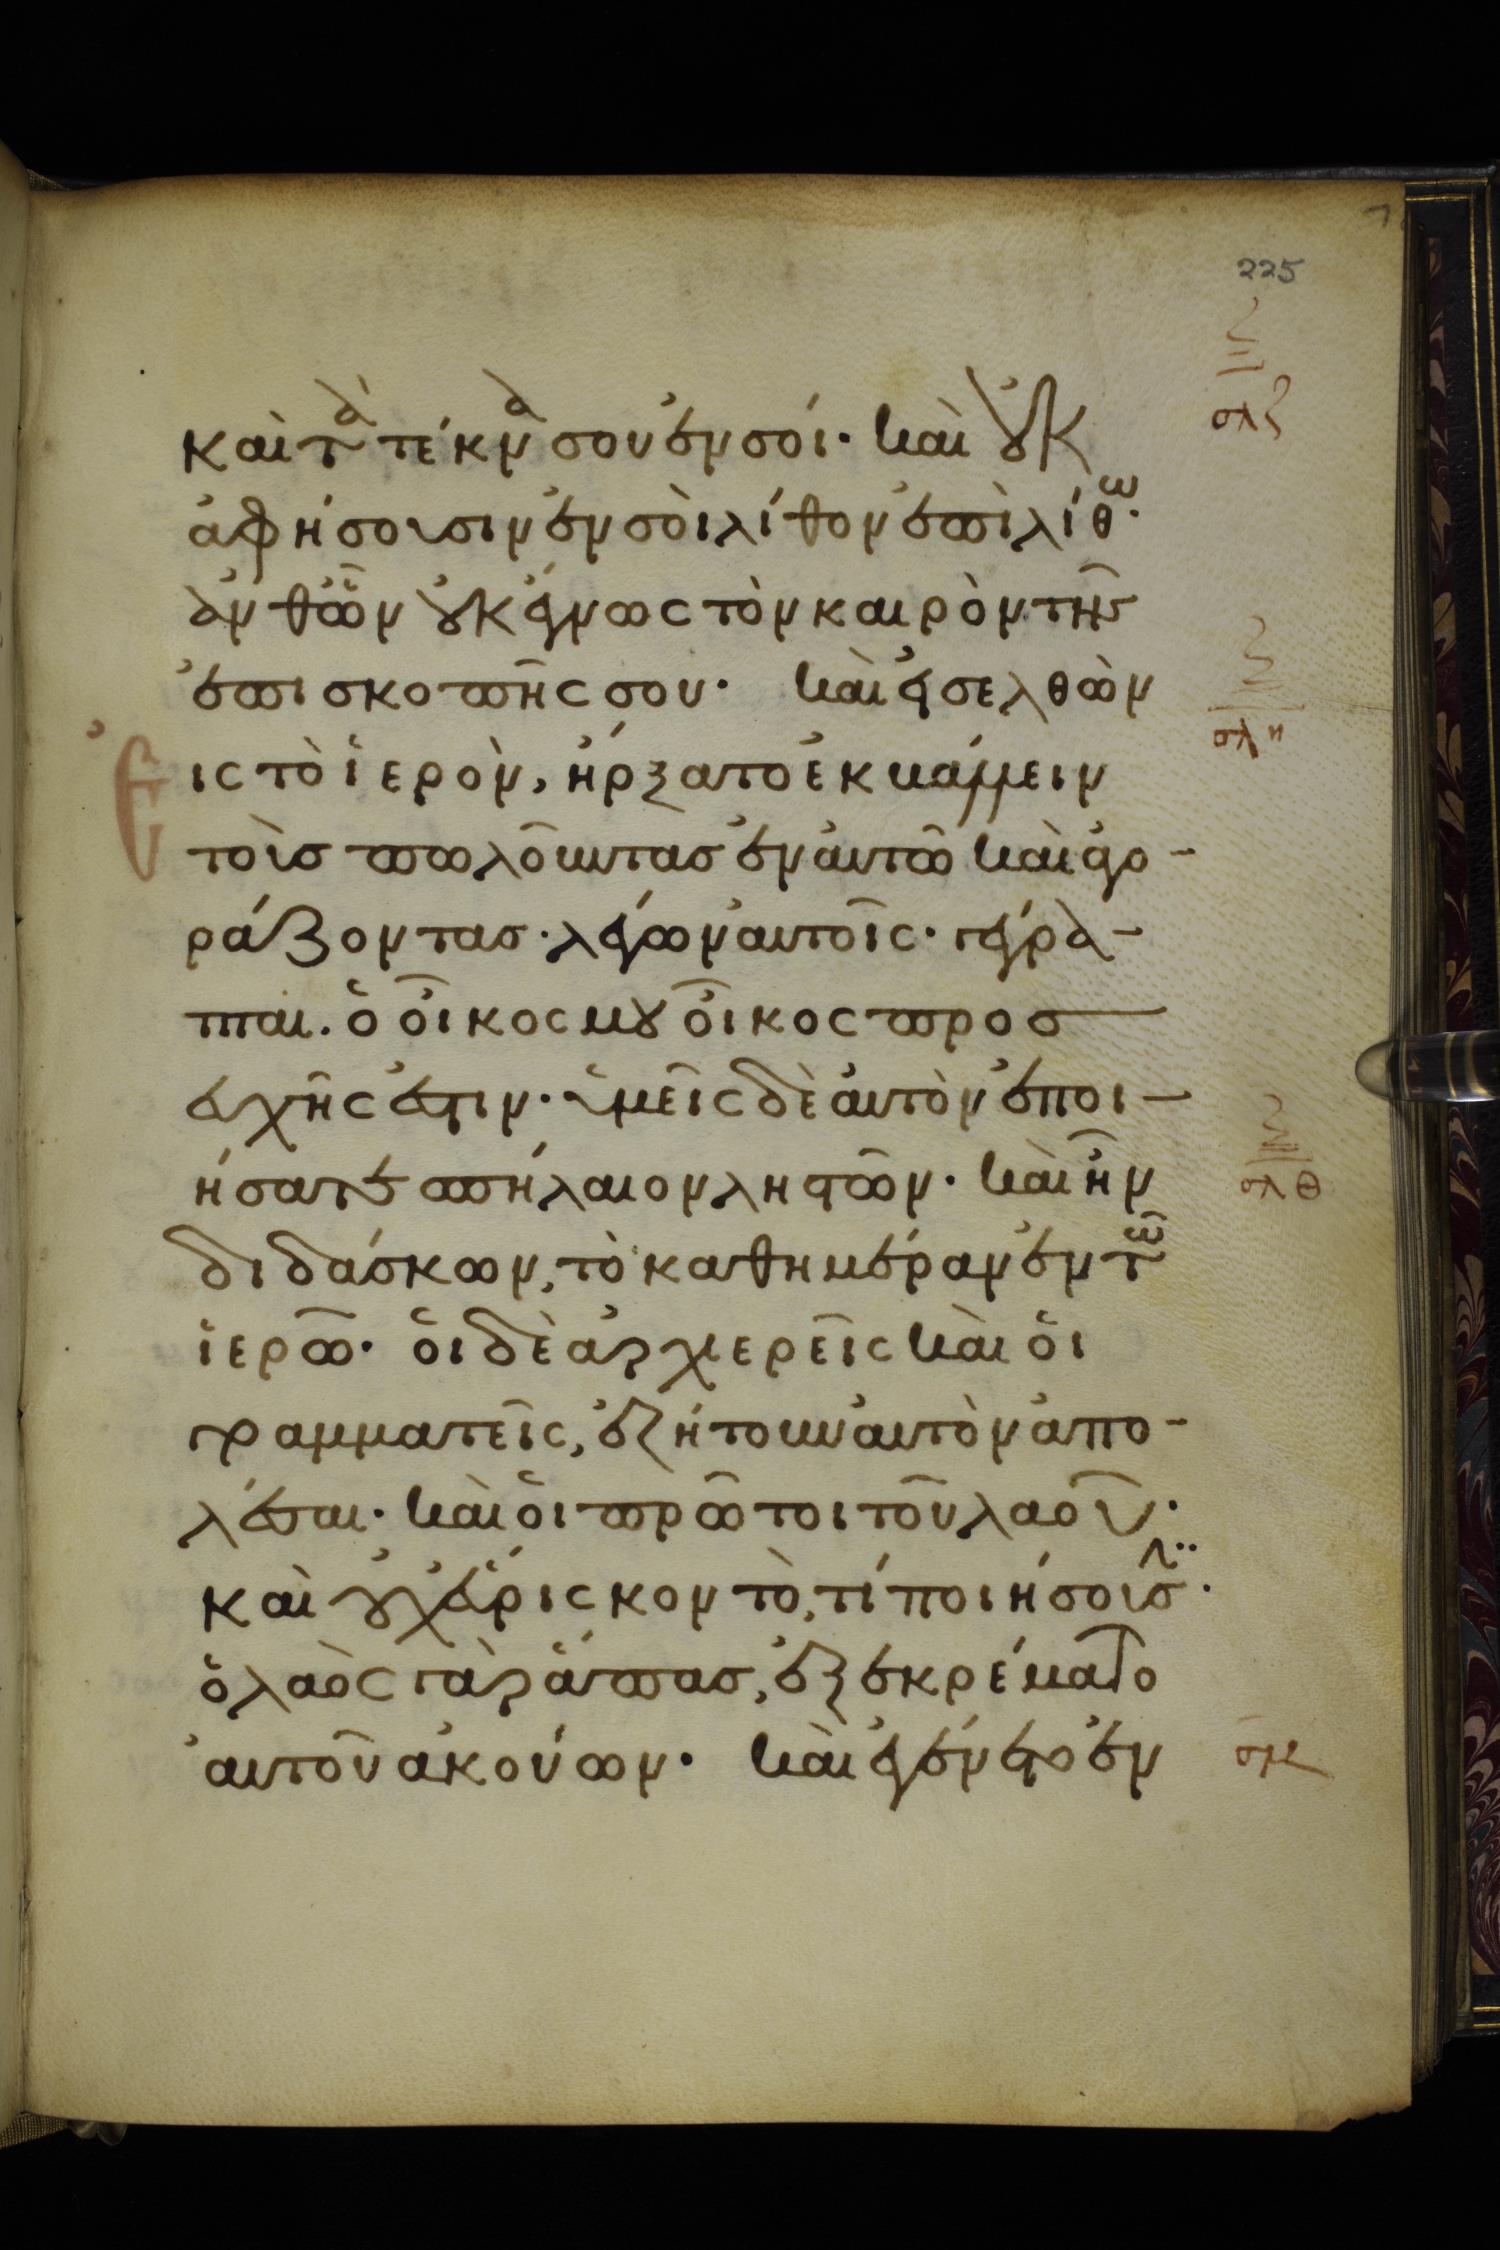 225
καὶ τὰ τέκνα σου ἐν σοί· καὶ οὐκ
σλζ
ἀφήσουσιν ἐν σοὶ λίθον ἐπὶ λίθω·
ἀνθῶν οὐκ ἔγνως τὸν καιρὸν τῆς
ἐπισκοπῆς σου· καὶ εἰσελθὼν
σλη
Εἰς τὸ ἱερὸν, ἤρξατο ἐκβάλλειν
τοὺς πωλοῦντας ἐν αὐτῶ καὶ ἀγο-
ράζοντας· λέγων αὐτοῖς· γέγρα-
πται· ὁ οἶκος μου οἶκος προσ
ευχῆς ἐστιν· ὑμεῖς δὲ αὐτὸν ἐποι-
ήσατε σπήλαιον ληστῶν· καὶ ἦν
σλθ
διδάσκων, τὸ καθημέραν ἐν τῶ
ἱερῶ· οἱ δὲ ἀρχιερεῖς καὶ οἱ
γραμματεῖς, ἐζήτουν αὐτὸν ἀπο-
λέσαι· καὶ οἱ πρῶτοι τοῦ λαοῦ·
καὶ οὐχ εὕρισκον τὸ, τί ποιήσουσιν·
ὁ λαὸς γὰρ ἅπας, ἐξεκρέματο
αὐτοῦ ἀκούων· καὶ ἐγένετο ἐν
σμ